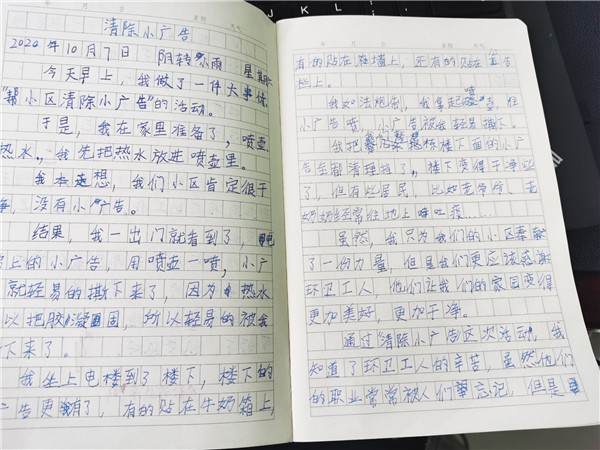 清除小广告
2020年10月7日 阴转小雨 星期
今天早上，我做了一件大事情，
“帮小区清除小广告”的活动。
于是，我在家里准备了，喷壶
热水，我先把热水放进喷壶里。
我本想，我们小区肯定很干
净，没有小广告。
结果，我一出门就看到了，电
上的小广告，用喷壶一喷，小广
就轻易的撕下来了，因为热水
以把胶凝固，所以轻易的被我
下来了。
我坐上电楼到了楼下，楼下的
广告更有了，有的贴在牛奶箱上，
有的贴在墙上，还有的贴在公告
栏上。
我如法炮制，我拿起喷壶，往
小广告喷，小广告被我轻易撕下。
我把整栋楼下面的小广
告全都清理掉了，楼下变得干净
了，但有些居民，比如爷爷、
奶奶经常往地上呼吐痰……
虽然，我只为我们的小区奉献
了一份力量，但是我们更应该感谢
环卫工人，他们让我们的家园变得
更加美好，更加干净。
通过“清除小广告这次活动，我
知道了环卫工人的辛苦，虽然他们
的职业常常被人们忘记，但是